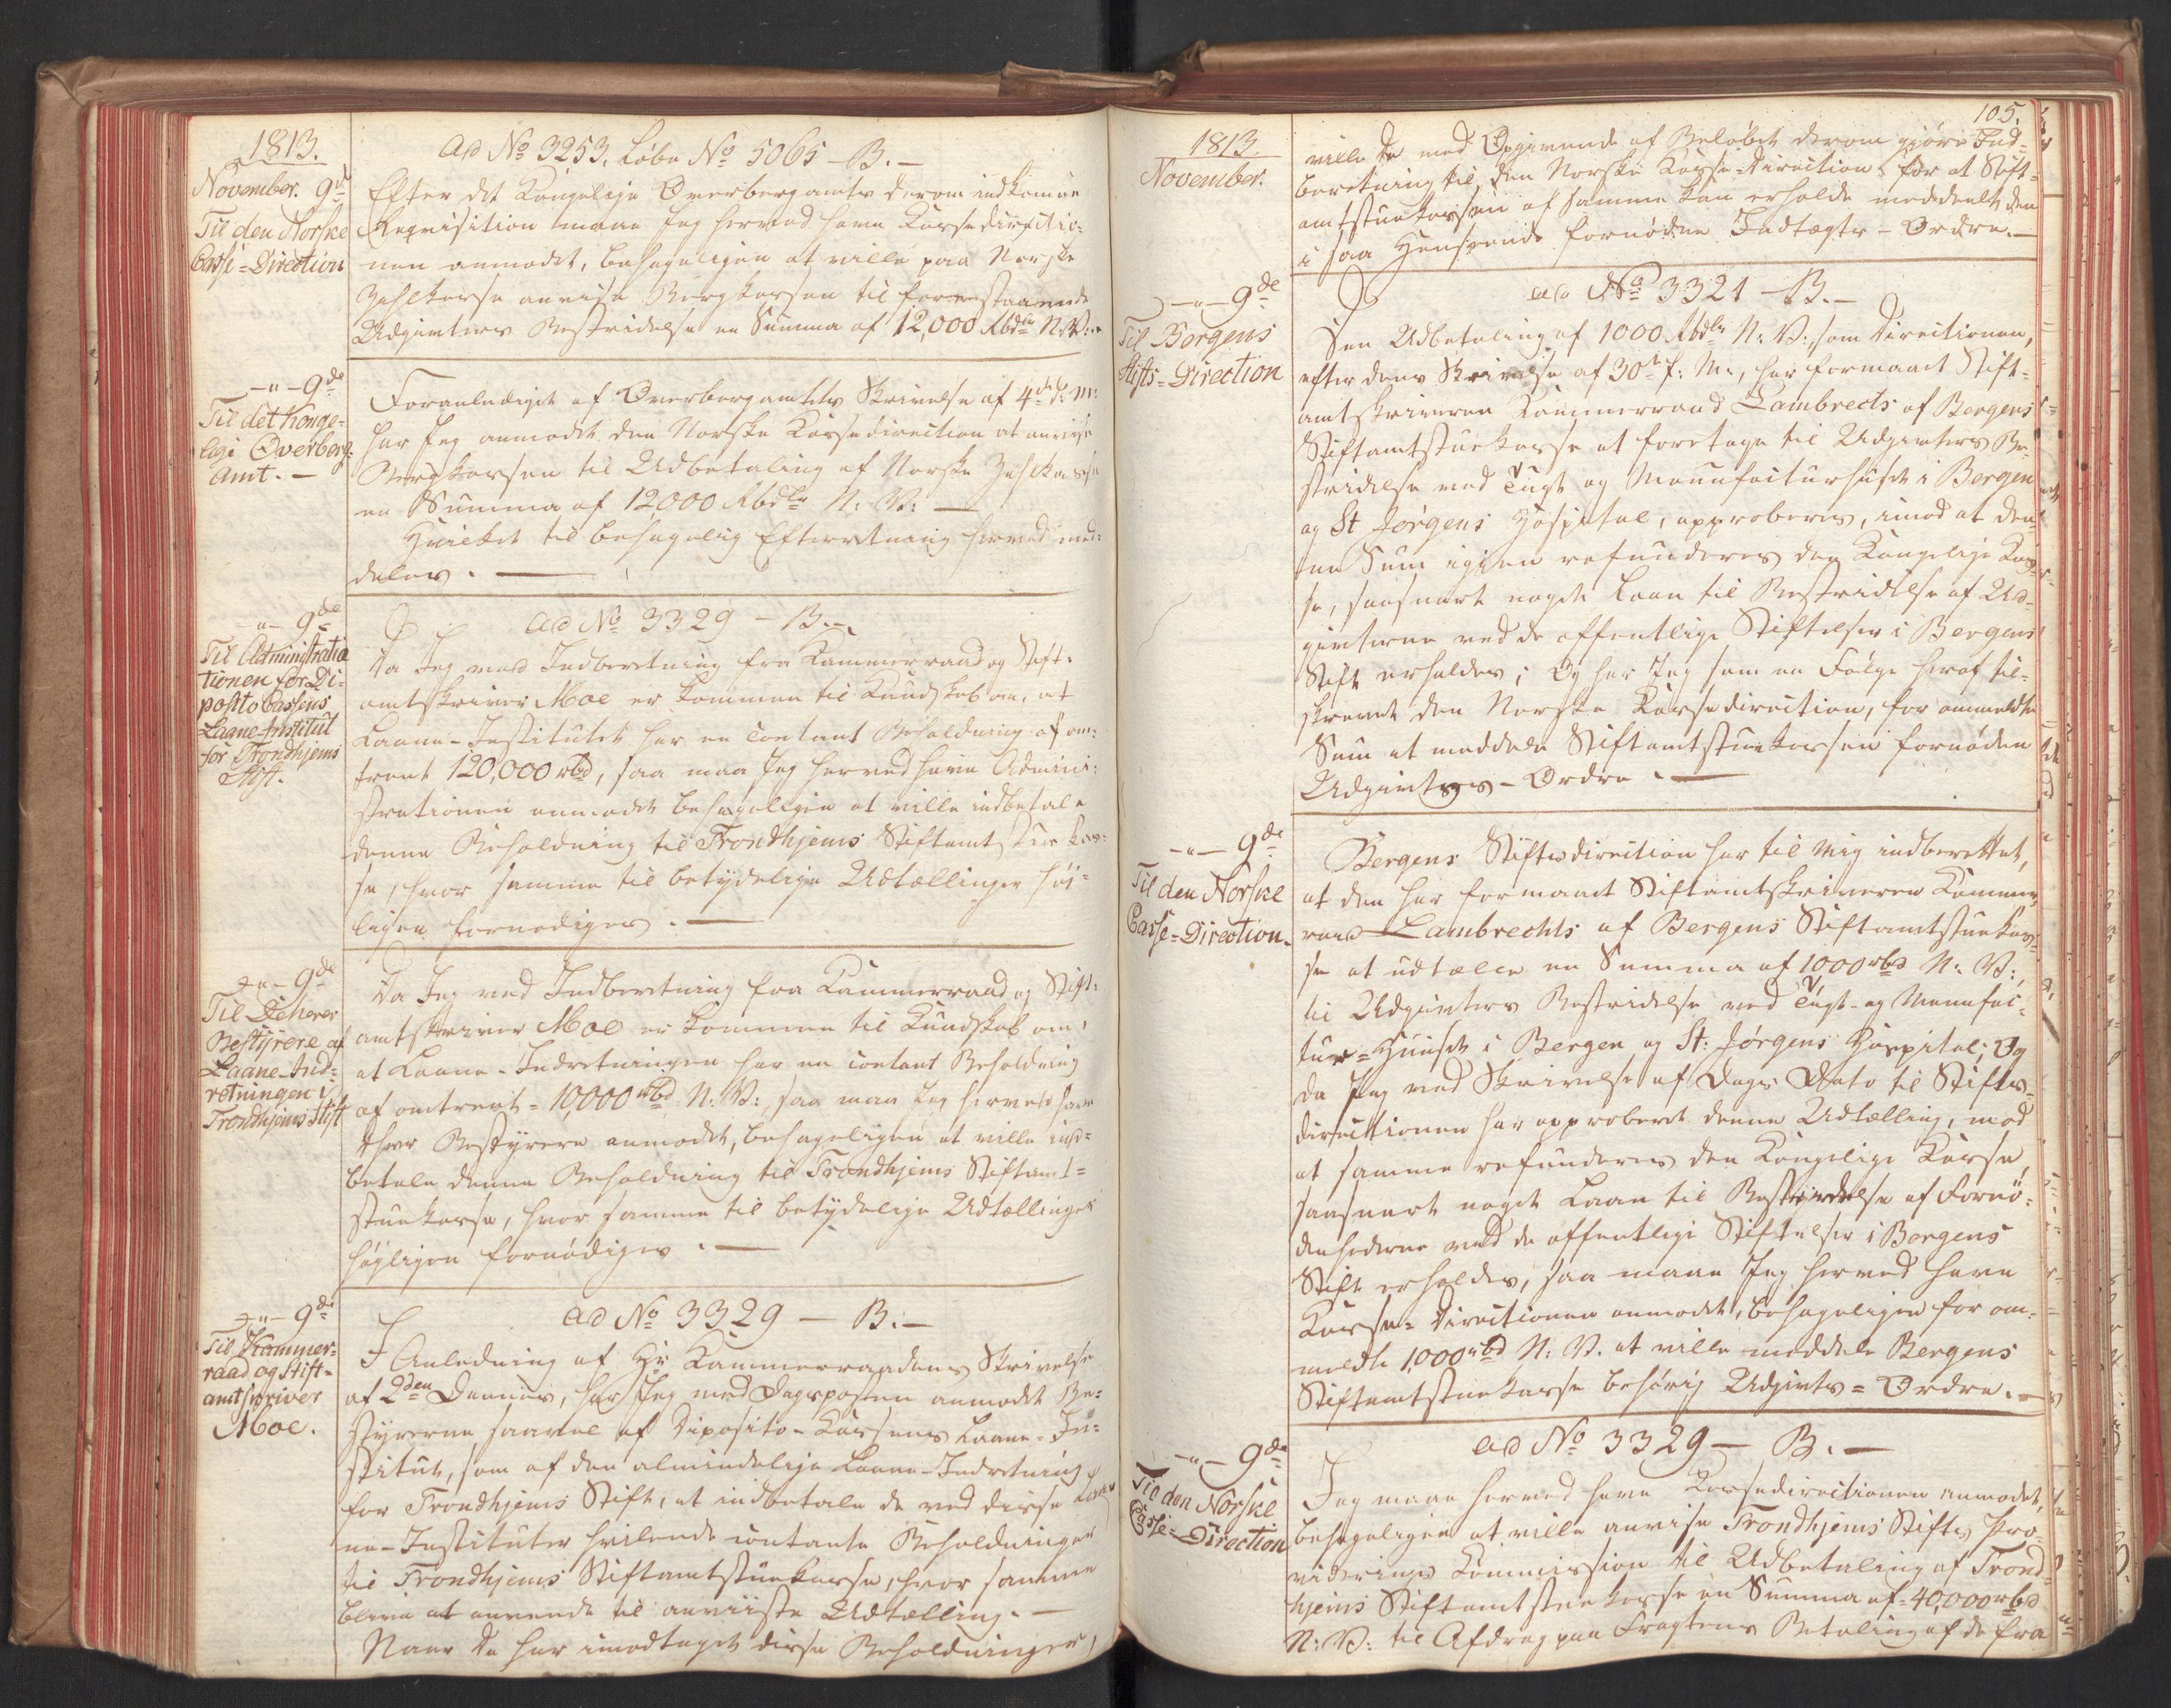 1813.
November. 9de
Til den Norske
Casse-Direction
ad No 3253. Løbe No 5065 - B. -
Efter det Kongelige Overbergamts derom indkomne
Reqvisition maae Jeg herved have Kassedirectio-
nen anmodet, behageligen at ville paa Norske
Zahlkasse anvise Bergkassen til forestaaende
Udgivters Bestridelse en Summa af 12,000 Rbdlr N: V:.
-"- 9de
Til det Konge-
lige Overberg-
amt. -
Foranlediget af Overbergamtets Skrivelse af 4de d: M:
har Jeg anmodet den Norske Kassedirection at anvise
Bergkassen til Udbetaling af Norske Zahlkasse
en Summa af 12000 Rbdlr N: V: -
Hvilket til behagelig Efterretning herved med-
deles. -
-"- 9de
Til Administra
tionen for De-
posito Cassens
Laane-Institut
for Trondhjems
Stift.
ad No 3329 - B. -
Da Jeg ved Indberetning fra Kammerraad og Stift-
amtskriver Moe er kommen til Kundskab om, at
Laane-Institutet har en contant Beholdning af om-
trent 120,000 rbd, saa maa Jeg herved have Admini-
strationen anmodet behageligen at ville indbetale
denne Beholdning til Trondhjems Stiftamtstue Kas-
se, hvor samme til betydelige Udtællinger høi-
ligen fornødiges. -
-"- 9de
Til De Herrer
Bestyrere af
Laane-Ind-
retningen i
Trondhjems Stift
Da Jeg ved Indberetning fra Kammerraad og Stift-
amtskriver Moe er kommen til Kundskab om,
at Laane-Indretningen har en contant Beholdning
af omtrent = 10,000 rbd N: V:, saa maa Jeg herved have
Dhrr Bestyrere anmodet, behageligen at ville ind-
betale denne Beholdning til Trondhjems Stiftamt-
stuekasse, hvor samme til betydelige Udtællinger
høyligen fornødiges. -
-"- 9de
Til Kammer-
raad og Stift-
amtskriver
Moe.
ad No 3329 - B. -
I Anledning af Hr Kammerraadens Skrivelse
af 2den Dennes, har Jeg med Dagsposten anmodet Be-
styrerne saavel af Deposito-Kassens Laane-In-
stitut, som af den almindelige Laane-Indretning
for Trondhjems Stift, at indbetale de ved disse Laa-
ne-Instituter hvilende contante Beholdninger
til Trondhjems Stiftamtstuekasse, hvor samme
blive at anvende til anviiste Udtælling. -
Naar De har imodtaget disse Beholdninger,
105.
1813.
November.
ville De med Opgivende af Beløbet derom giøre Ind-
beretning til den Norske Kasse-Direction for at Stift-
amtstuekassen af samme kan erholde meddeelt den
i saa Henseende fornødne Indtægts-Ordre. -
-"- 9de
Til Bergens
Stifts-Direction
ad No 3321 - B. -
Den Udbetaling af 1000 Rbdlr N: V:, som Directionen,
efter dens Skrivelse af 30te f: M:, har formaaet Stift-
amtskriveren Kammerraad Lambrects af Bergens
Stiftamtstuekasse at foretage til Udgivters Be-
stridelse ved Tugt og Manufacturhuset i Bergen
og St Jørgens Hospital, approberes, imod at den-
ne Sum igien refunderes den Kongelige Kas-
se, saasnart noget Laan til Bestridelse af Ud-
givterne ved de offentlige Stiftelser i Bergens
Stift erholdes; Og har Jeg som en Følge heraf til-
skrevet den Norske Kassedirection, for ommeldte
Sum at meddele Stiftamtstuekassen fornøden
Udgivts-Ordre. -
-"- 9de
Til den Norske
Casse-Direction.
Bergens Stiftsdirection har til Mig indberettet,
at den har formaaet Stiftamtskriveren Kammer-
raad Lambrechts af Bergens Stiftamtstuekas-
se at udtælle en Summa af 1000 rbd N: V:,
til Udgivters Bestridelse ved Tugt- og Manufac-
tur-Huuset i Bergen og St: Jørgens Hospital; Og
da Jeg ved Skrivelse af Dags Dato til Stifts-
directionen har approberet denne Udtælling, mod
at samme refunderes den Kongelige Kasse,
saasnart noget Laan til Bestridelse af Fornø-
denhederne ved de offentlige Stiftelser i Bergens
Stift erholdes, saa maae Jeg herved have
Kasse-Directionen anmodet, behageligen for om-
meldte 1,000 rbd N: V. at ville meddele Bergens
Stiftamtstuekasse behørig Udgivts-Ordre. -
-"- 9de
Til den Norske
Casse-Direction
ad No 3329 - B. -
Jeg maae herved have Kassedirectionen anmodet,
behageligen at ville anvise Trondhjems Stifts Pro-
viderings Commission til Udbetaling af Trond-
hjems Stiftamtstuekasse en Summa af = 40,000 rbd
N: V: til Afdrag paa Fragtens Betaling af de fra